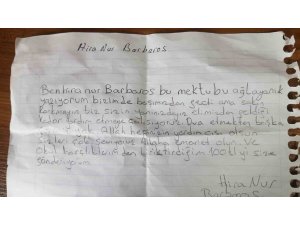 Hira Nur Barbaros
Ben Hira nur Barbaros bu mektubu ağlayarak
yazıyorum bizimde başımızdan geçti ama sakın
korkmayın biz sizin yanınızdayız elimizden geldiği
kadar yardım etmeye çalışıyoruz. Dua etmekten başka
Allah hepinizin yardımcısı olsun
Sizleri çok seviyoruz Allaha emanet olun. Ve
harçlıklarımdan biriktirdiğim 100 tl yi size
gönderiyorum
Hira Nur
Barbaros